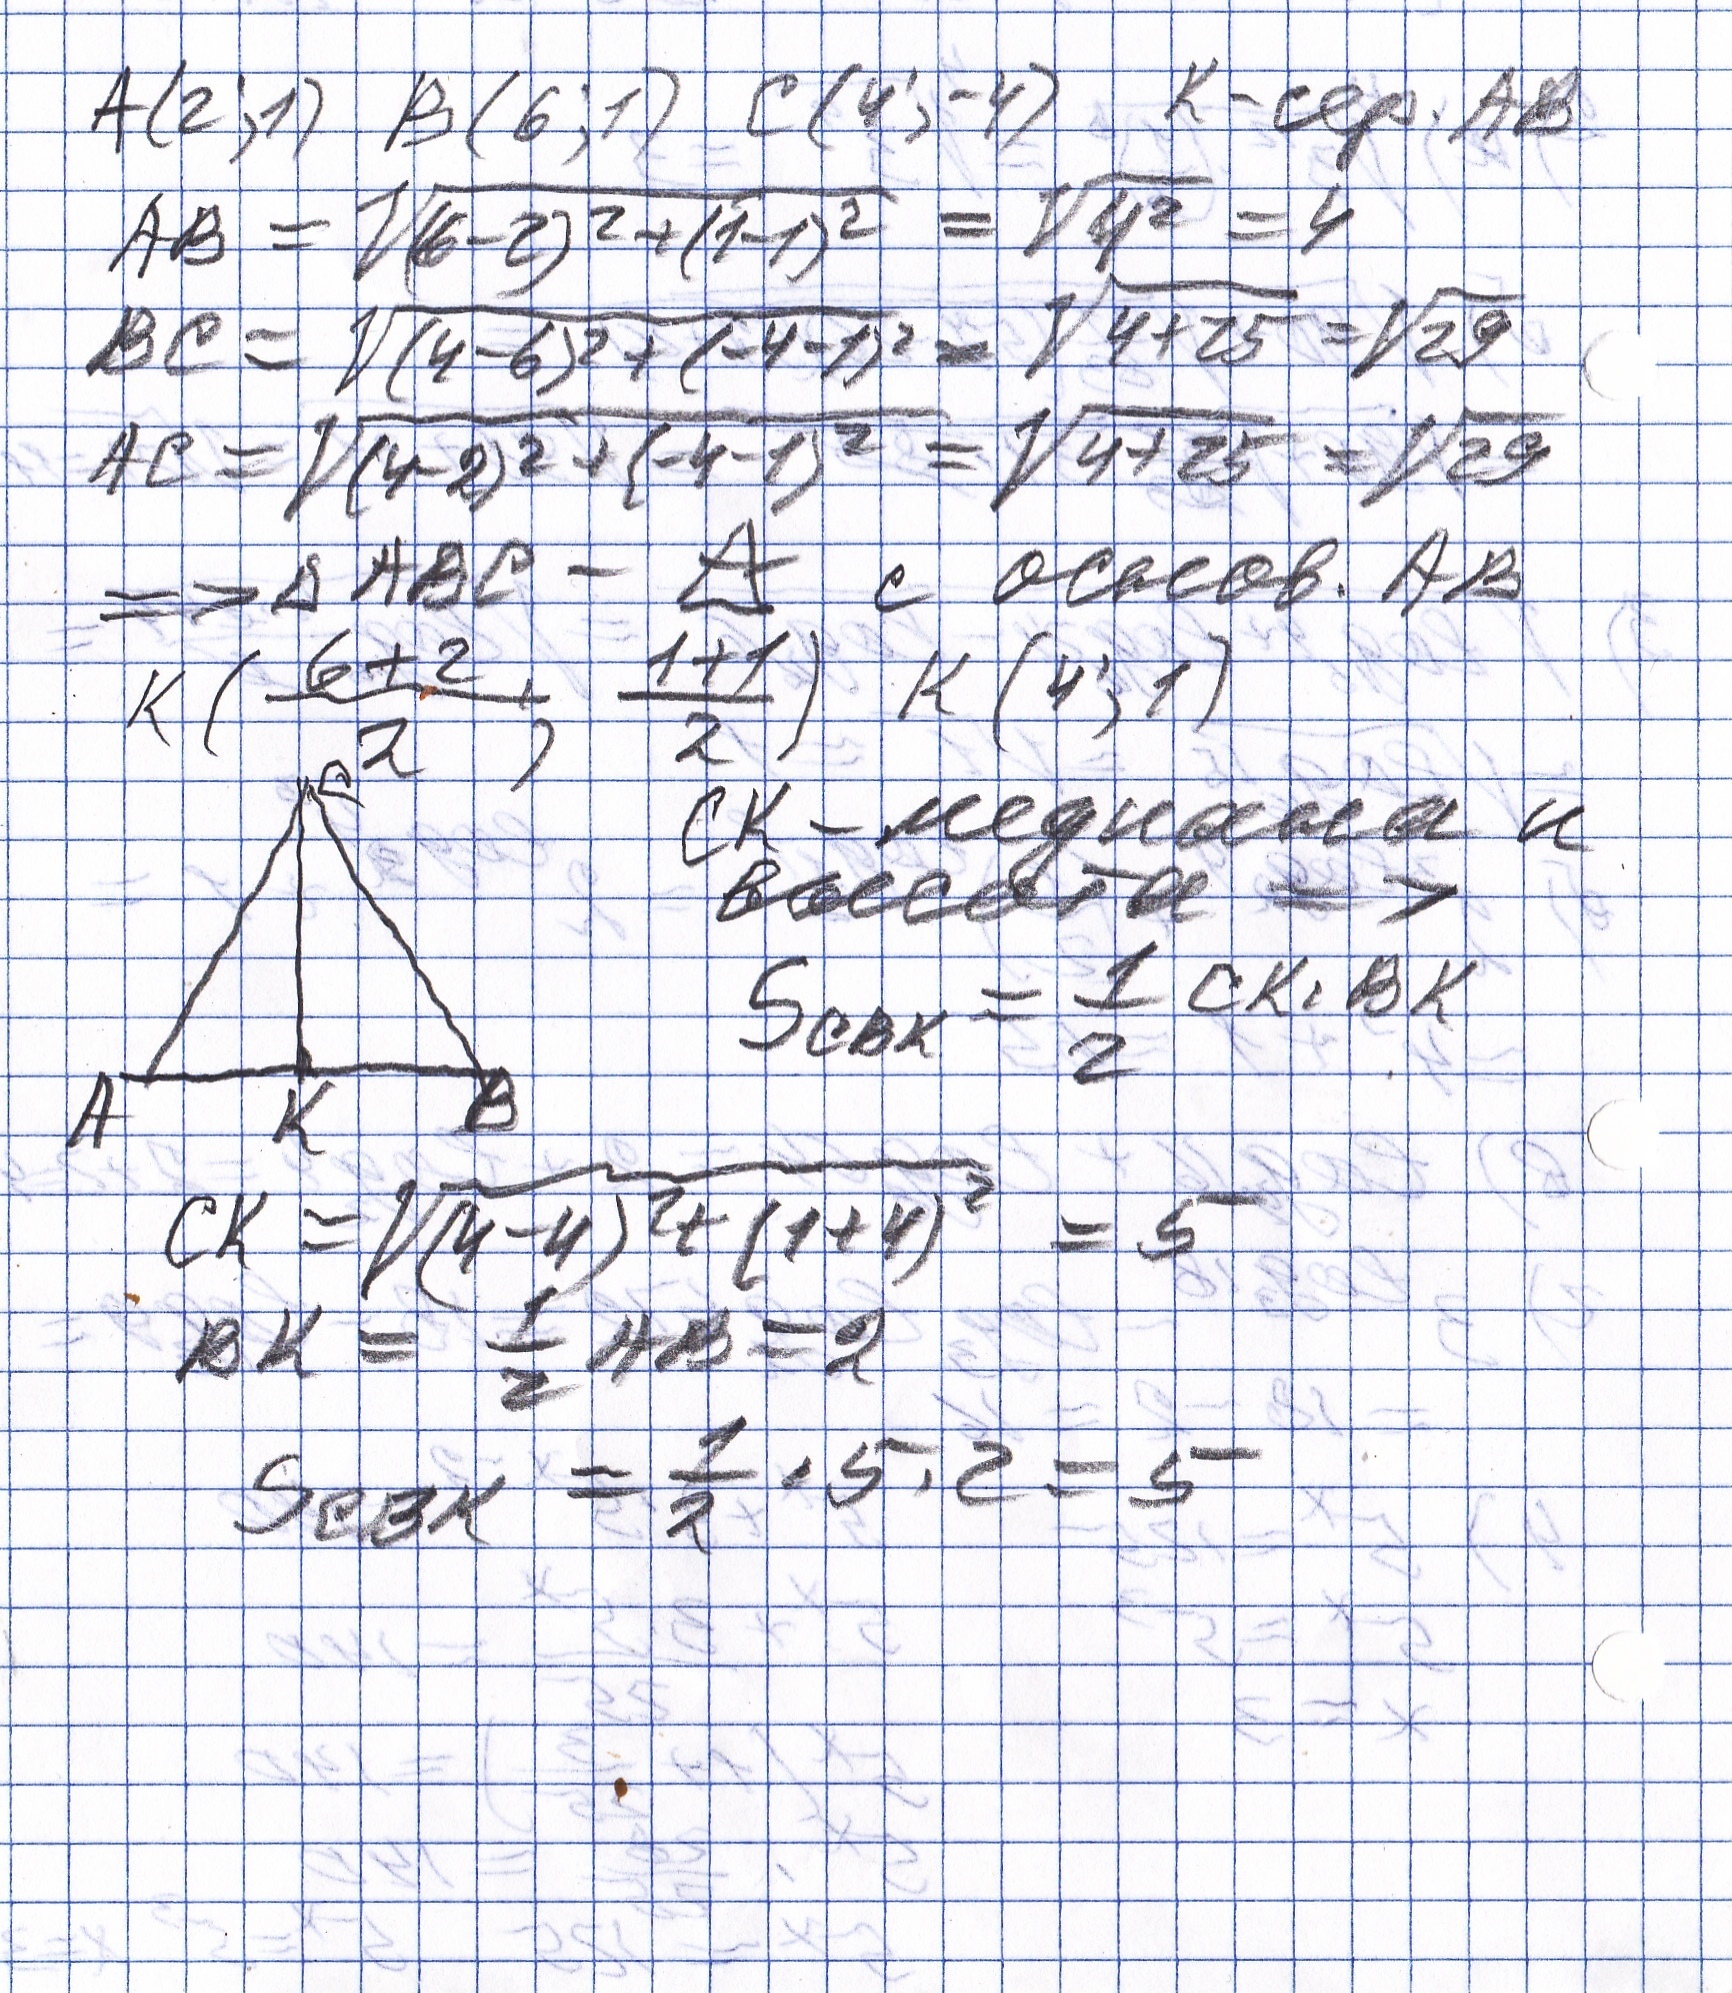 A(2;1) B(6;1) C(4;-4) K-сер. AB
AB = √((6-2)²+(1-1)²) = √4² = 4
BC = √((4-6)²+(-4-1)²) = √(4+25) = √29
AC = √((4-2)²+(-4-1)²) = √(4+25) = √29
=> Δ ABC - с основ. AB
K(6+2/2; 1+1/2) K(4;1)
C
CK - медиана и
высота =>
S_CBK = 1/2 CK · BK
A K B
CK = √((4-4)²+(1+4)²) = 5
BK = 1/2 AB = 2
S_CBK = 1/2 · 5 · 2 = 5